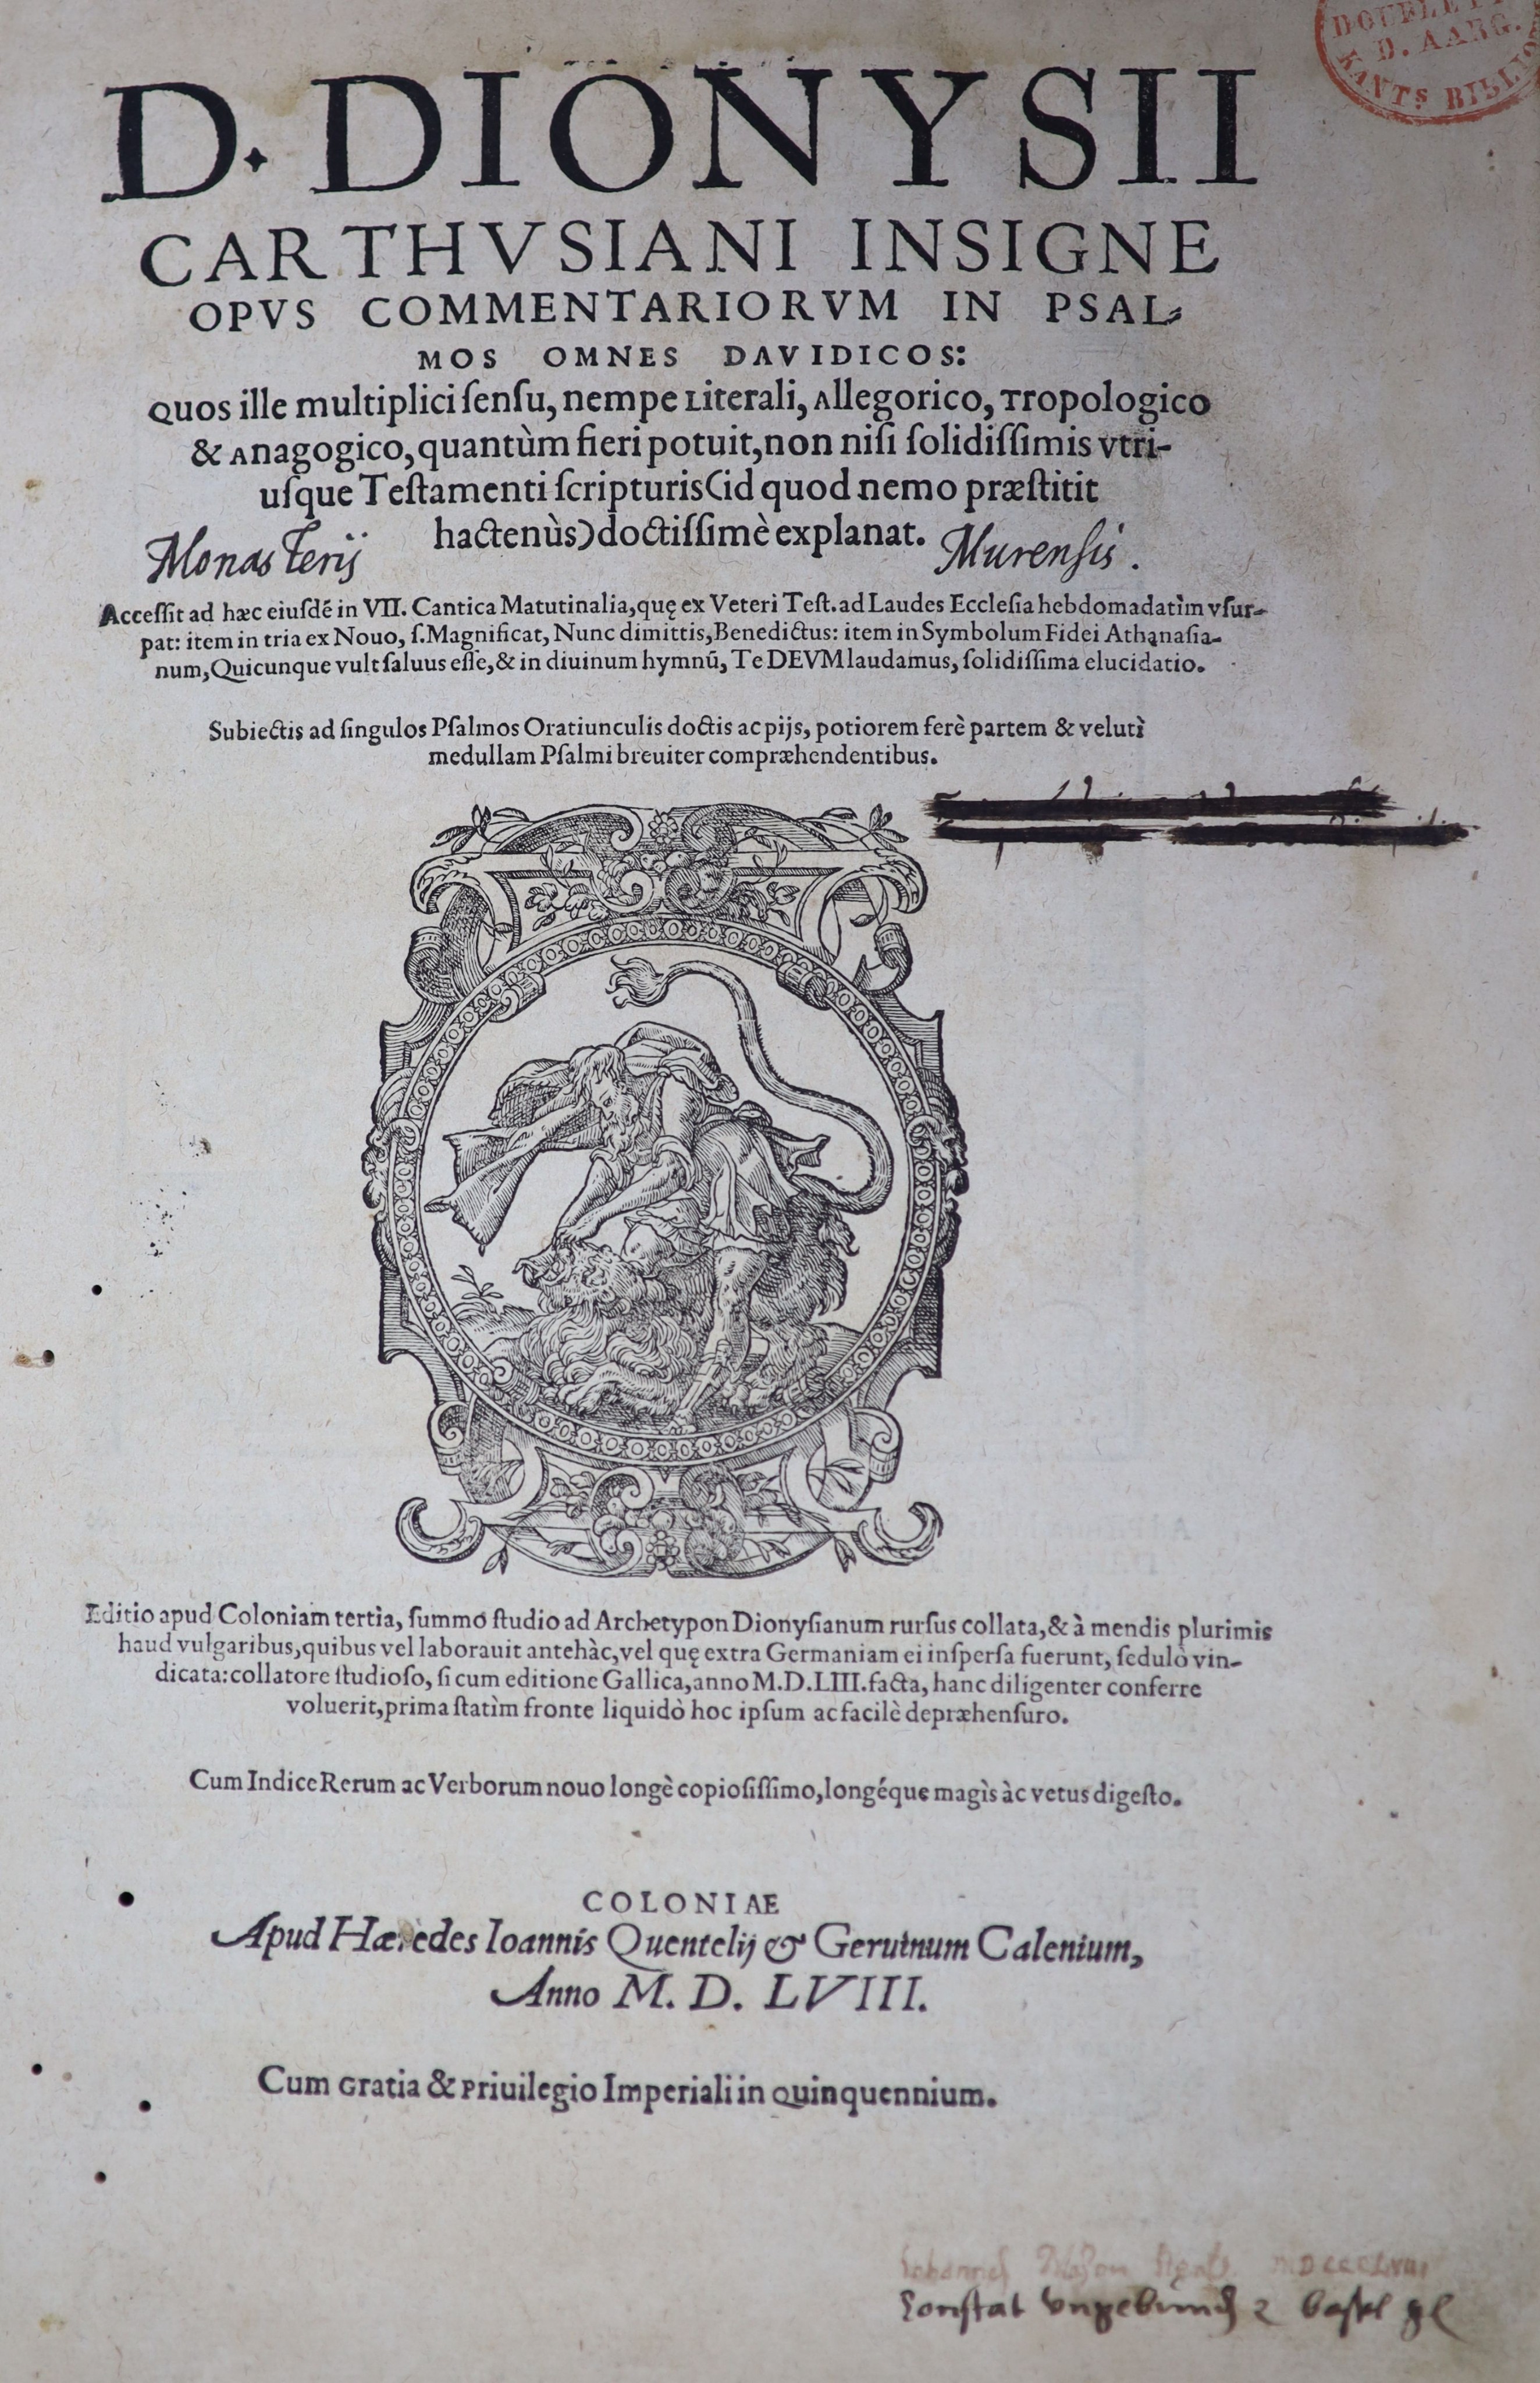 DOUBLET
D. AARG.
KANTs BIBLIO
D. DIONYSII
CARTHVSIANI INSIGNE
OPVS COMMENTARIORVM IN PSAL⸗
MOS OMNES DAVIDICOS:
Quos ille multiplici ſenſu, nempe Literali, Allegorico, Tropologico
& Anagogico, quantùm fieri potuit, non niſi ſolidiſſimis vtri-
uſque Teſtamenti ſcripturis (id quod nemo præſtitit
hactenùs) doctiſſimè explanat.
Monasterij Murensis.
Acceſſit ad hæc eiuſdē in VII. Cantica Matutinalia, quę ex Veteri Teſt. ad Laudes Eccleſia hebdomadatìm vſur-
pat: item in tria ex Nouo, ſ. Magnificat, Nunc dimittis, Benedictus: item in Symbolum Fidei Athanaſia-
num, Quicunque vult ſaluus eſſe, & in diuinum hymnū, Te DEVM laudamus, ſolidiſſima elucidatio.
Subiectis ad ſingulos Pſalmos Oratiunculis doctis ac pijs, potiorem ferè partem & velutì
medullam Pſalmi breuiter compræhendentibus.
Editio apud Coloniam tertia, ſummo ſtudio ad Archetypon Dionyſianum rurſus collata, & à mendis plurimis
haud vulgaribus, quibus vel laborauit antehàc, vel quę extra Germaniam ei inſperſa fuerunt, ſedulò vin-
dicata: collatore ſtudioſo, ſi cum editione Gallica, anno M.D.LIII. facta, hanc diligenter conferre
voluerit, prima ſtatìm fronte liquidò hoc ipſum ac facilè depræhenſuro.
Cum Indice Rerum ac Verborum nouo longè copioſiſſimo, longéque magìs àc vetus digeſto.
COLONIAE
Apud Hæredes Ioannis Quentelij & Geruinum Calenium,
Anno M. D. LVIII.
Cum Gratia & Priuilegio Imperiali in Quinquennium.
Constat